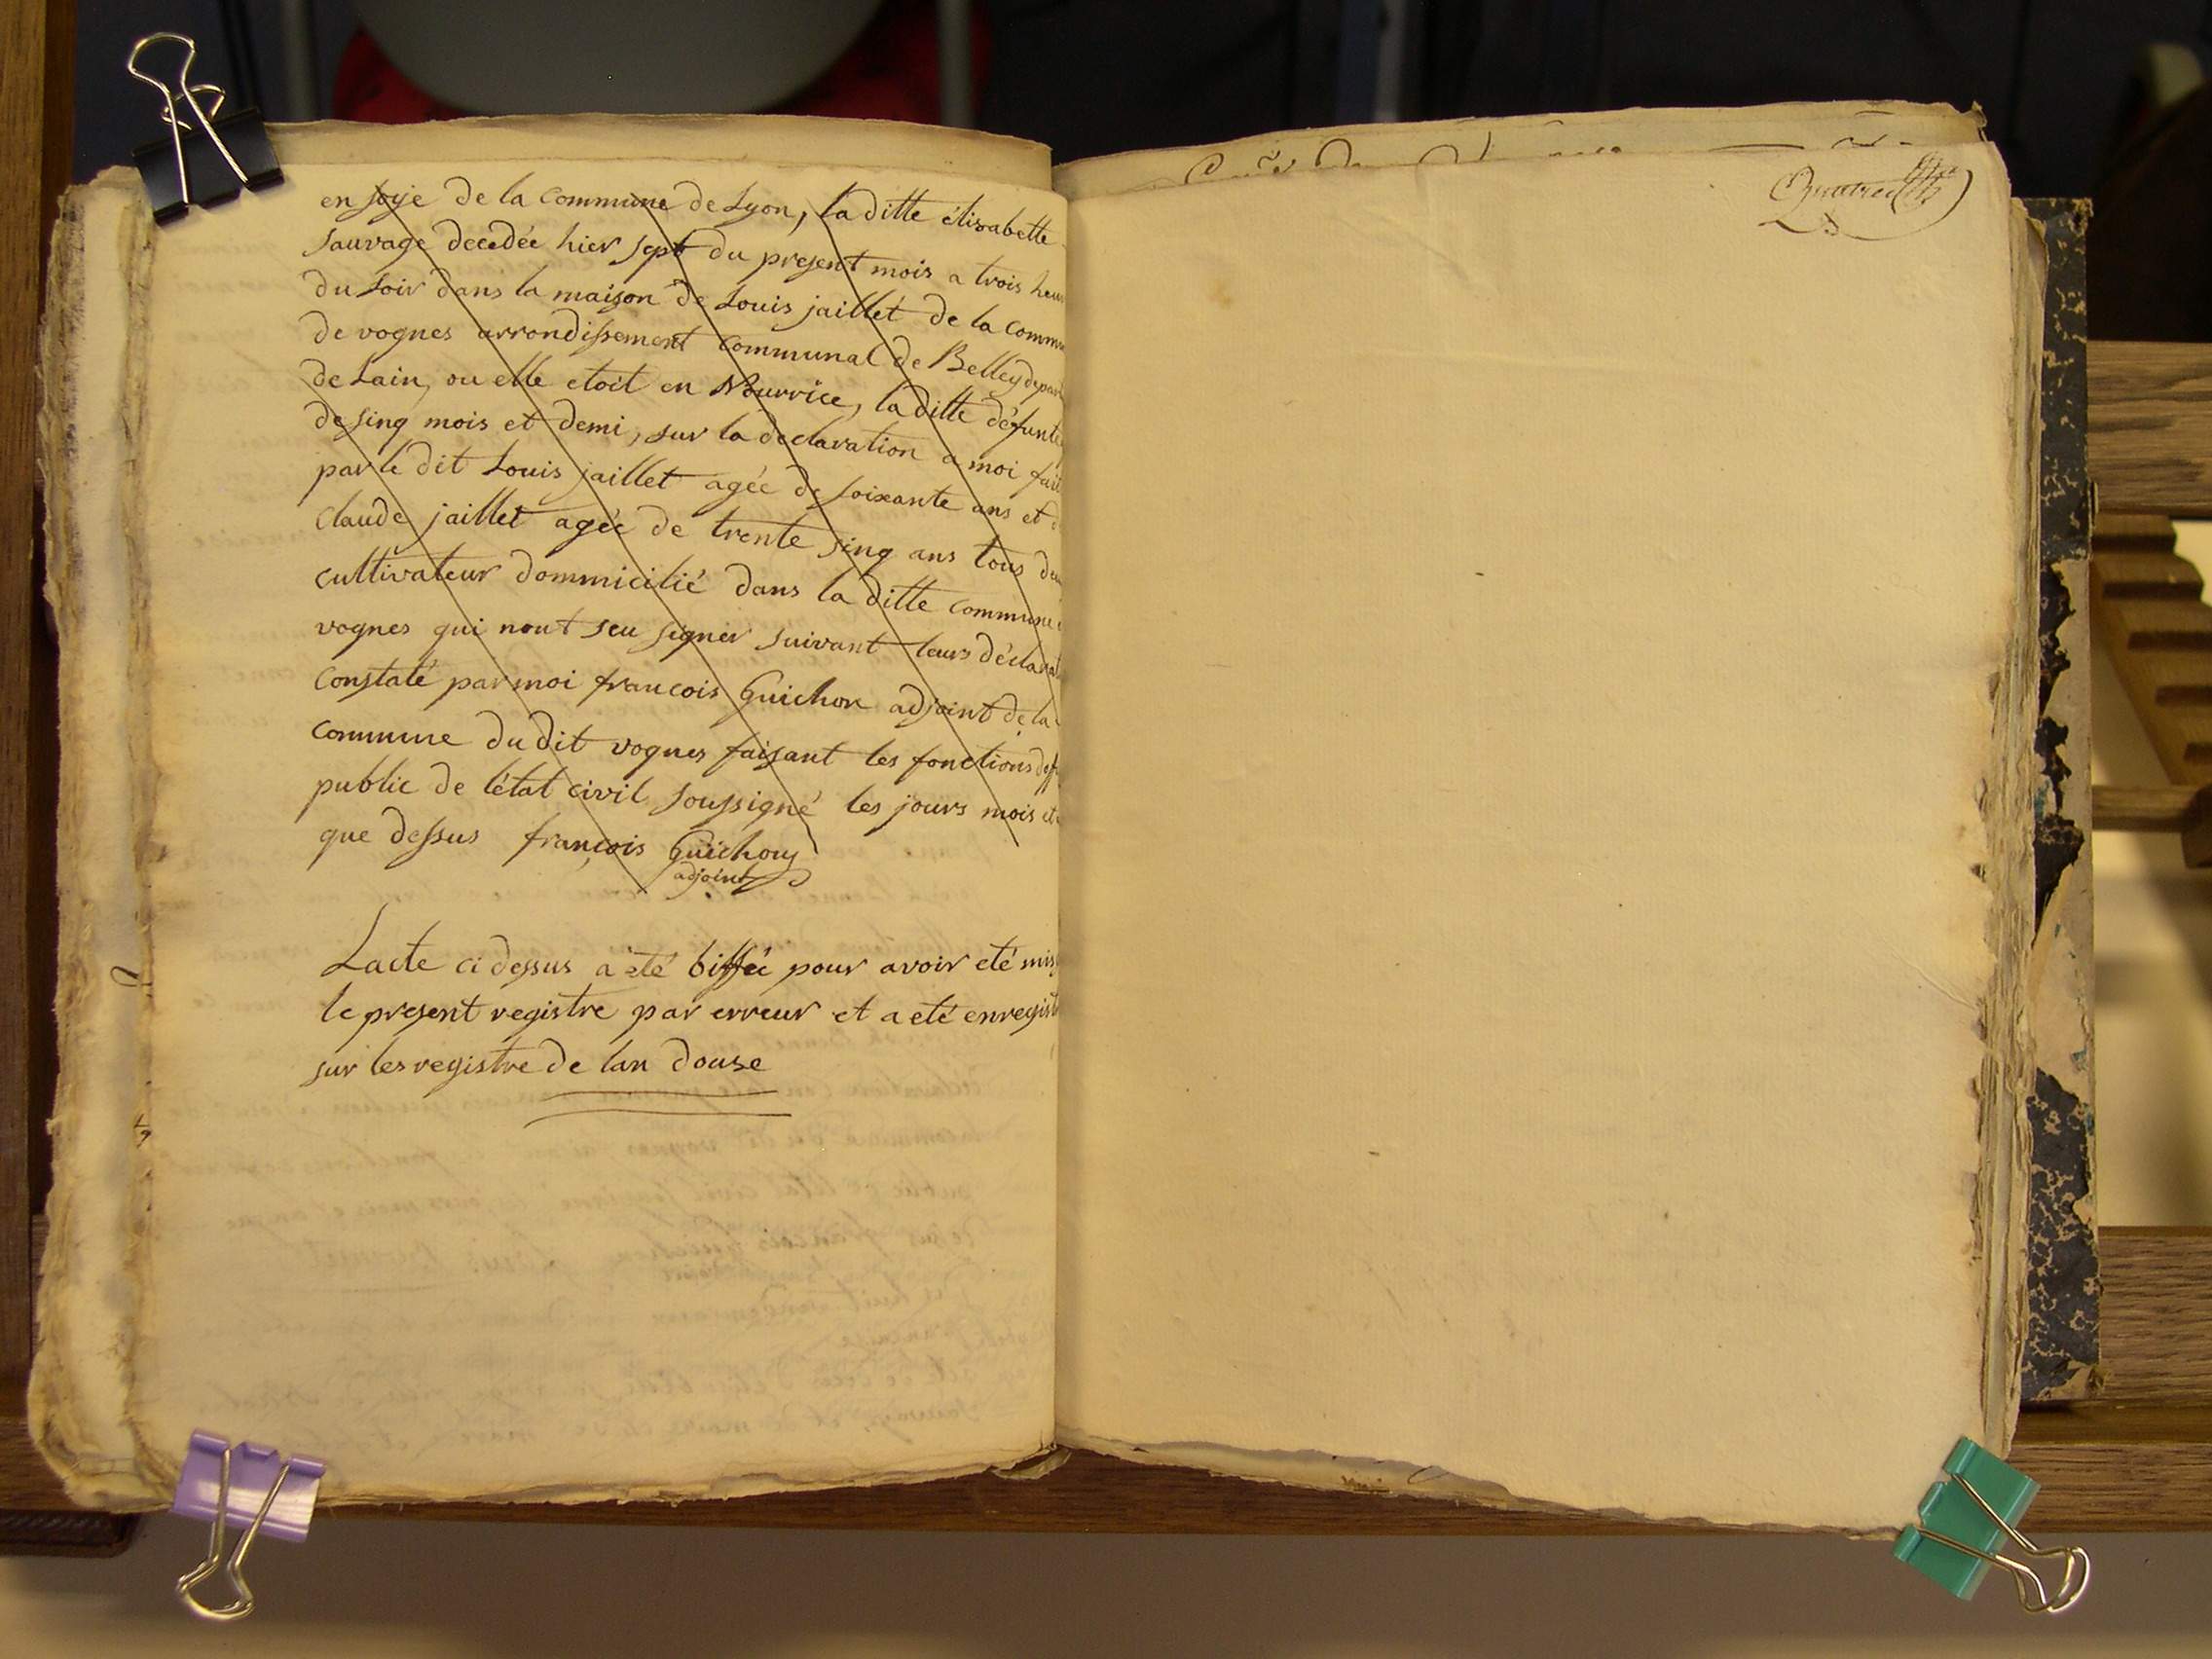 en soye de la Commune de Lyon, la ditte élisabette
sauvage decedée hier sept du present mois a trois heur
du soir dans la maison de Louis jaillet de la comm
de vognes arrondissement Communal de Belley depar
de Lain, ou elle etoit en Nourrice, la ditte défunte
de sinq mois et demi, sur la declaration a moi fait
par le dit Louis jaillet agée de soixante ans et d
Claude jaillet agée de trente sinq ans tous deu
cultivateur dommicilié dans la ditte commune
vognes qui nont seu signer suivant leurs déclarat
Constaté par moi francois Guichon adjoint de la
commune du dit vognes faisant les fonctions
public de létat civil soussigné les jours mois et
que dessus françois Guichon
adjoint
Lacte ci dessus a été biffée pour avoir eté mis
le present registre par erreur et a eté enregist
sur les registre de lan douse